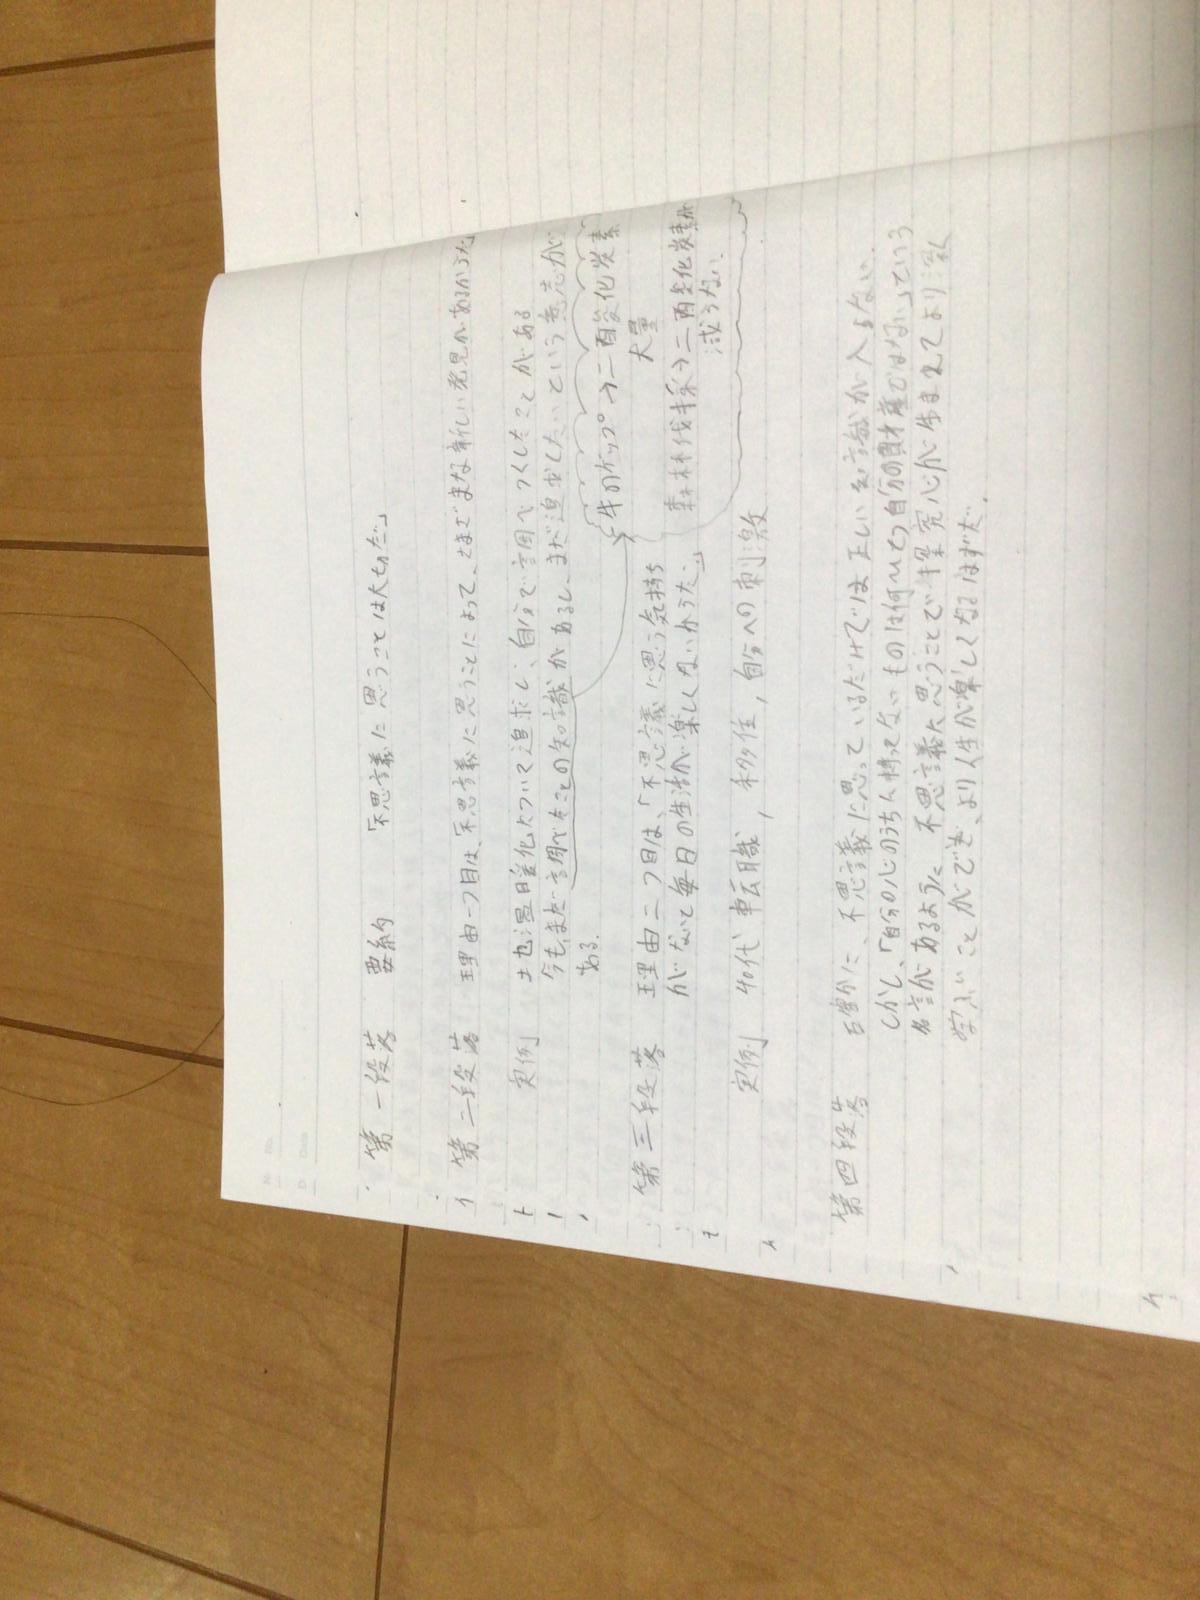 第一段落　要約　「不思議に思うことは大切だ」
第二段落　理由一つ目は、不思議に思うことによって、さまざまな新しい発見があるからだ
実例　地温暖化について追求し、自分で調べつくしたことがある
今も、まだ調べたことの知識があるし、まだ追求したいという意志が
ある.
牛のゲップ→二酸化炭素
大量
森林伐採→二酸化炭素が
減らない
第三段落　理由二つ目は、「不思議に思う気持ち
がないと毎日の生活が楽しくないからだ。」
実例　40代　転職，移住，自分への刺激
第四段落　確かに、不思議に思っているだけでは正しい知識が入らない.
しかし、「自分の心のうちに持てないものは何ひとつ自分の財産ではない」という
名言があるように、不思議に思うことで探究心が生まれてより深く
学ぶことができ、より人生が楽しくなるはずだ.